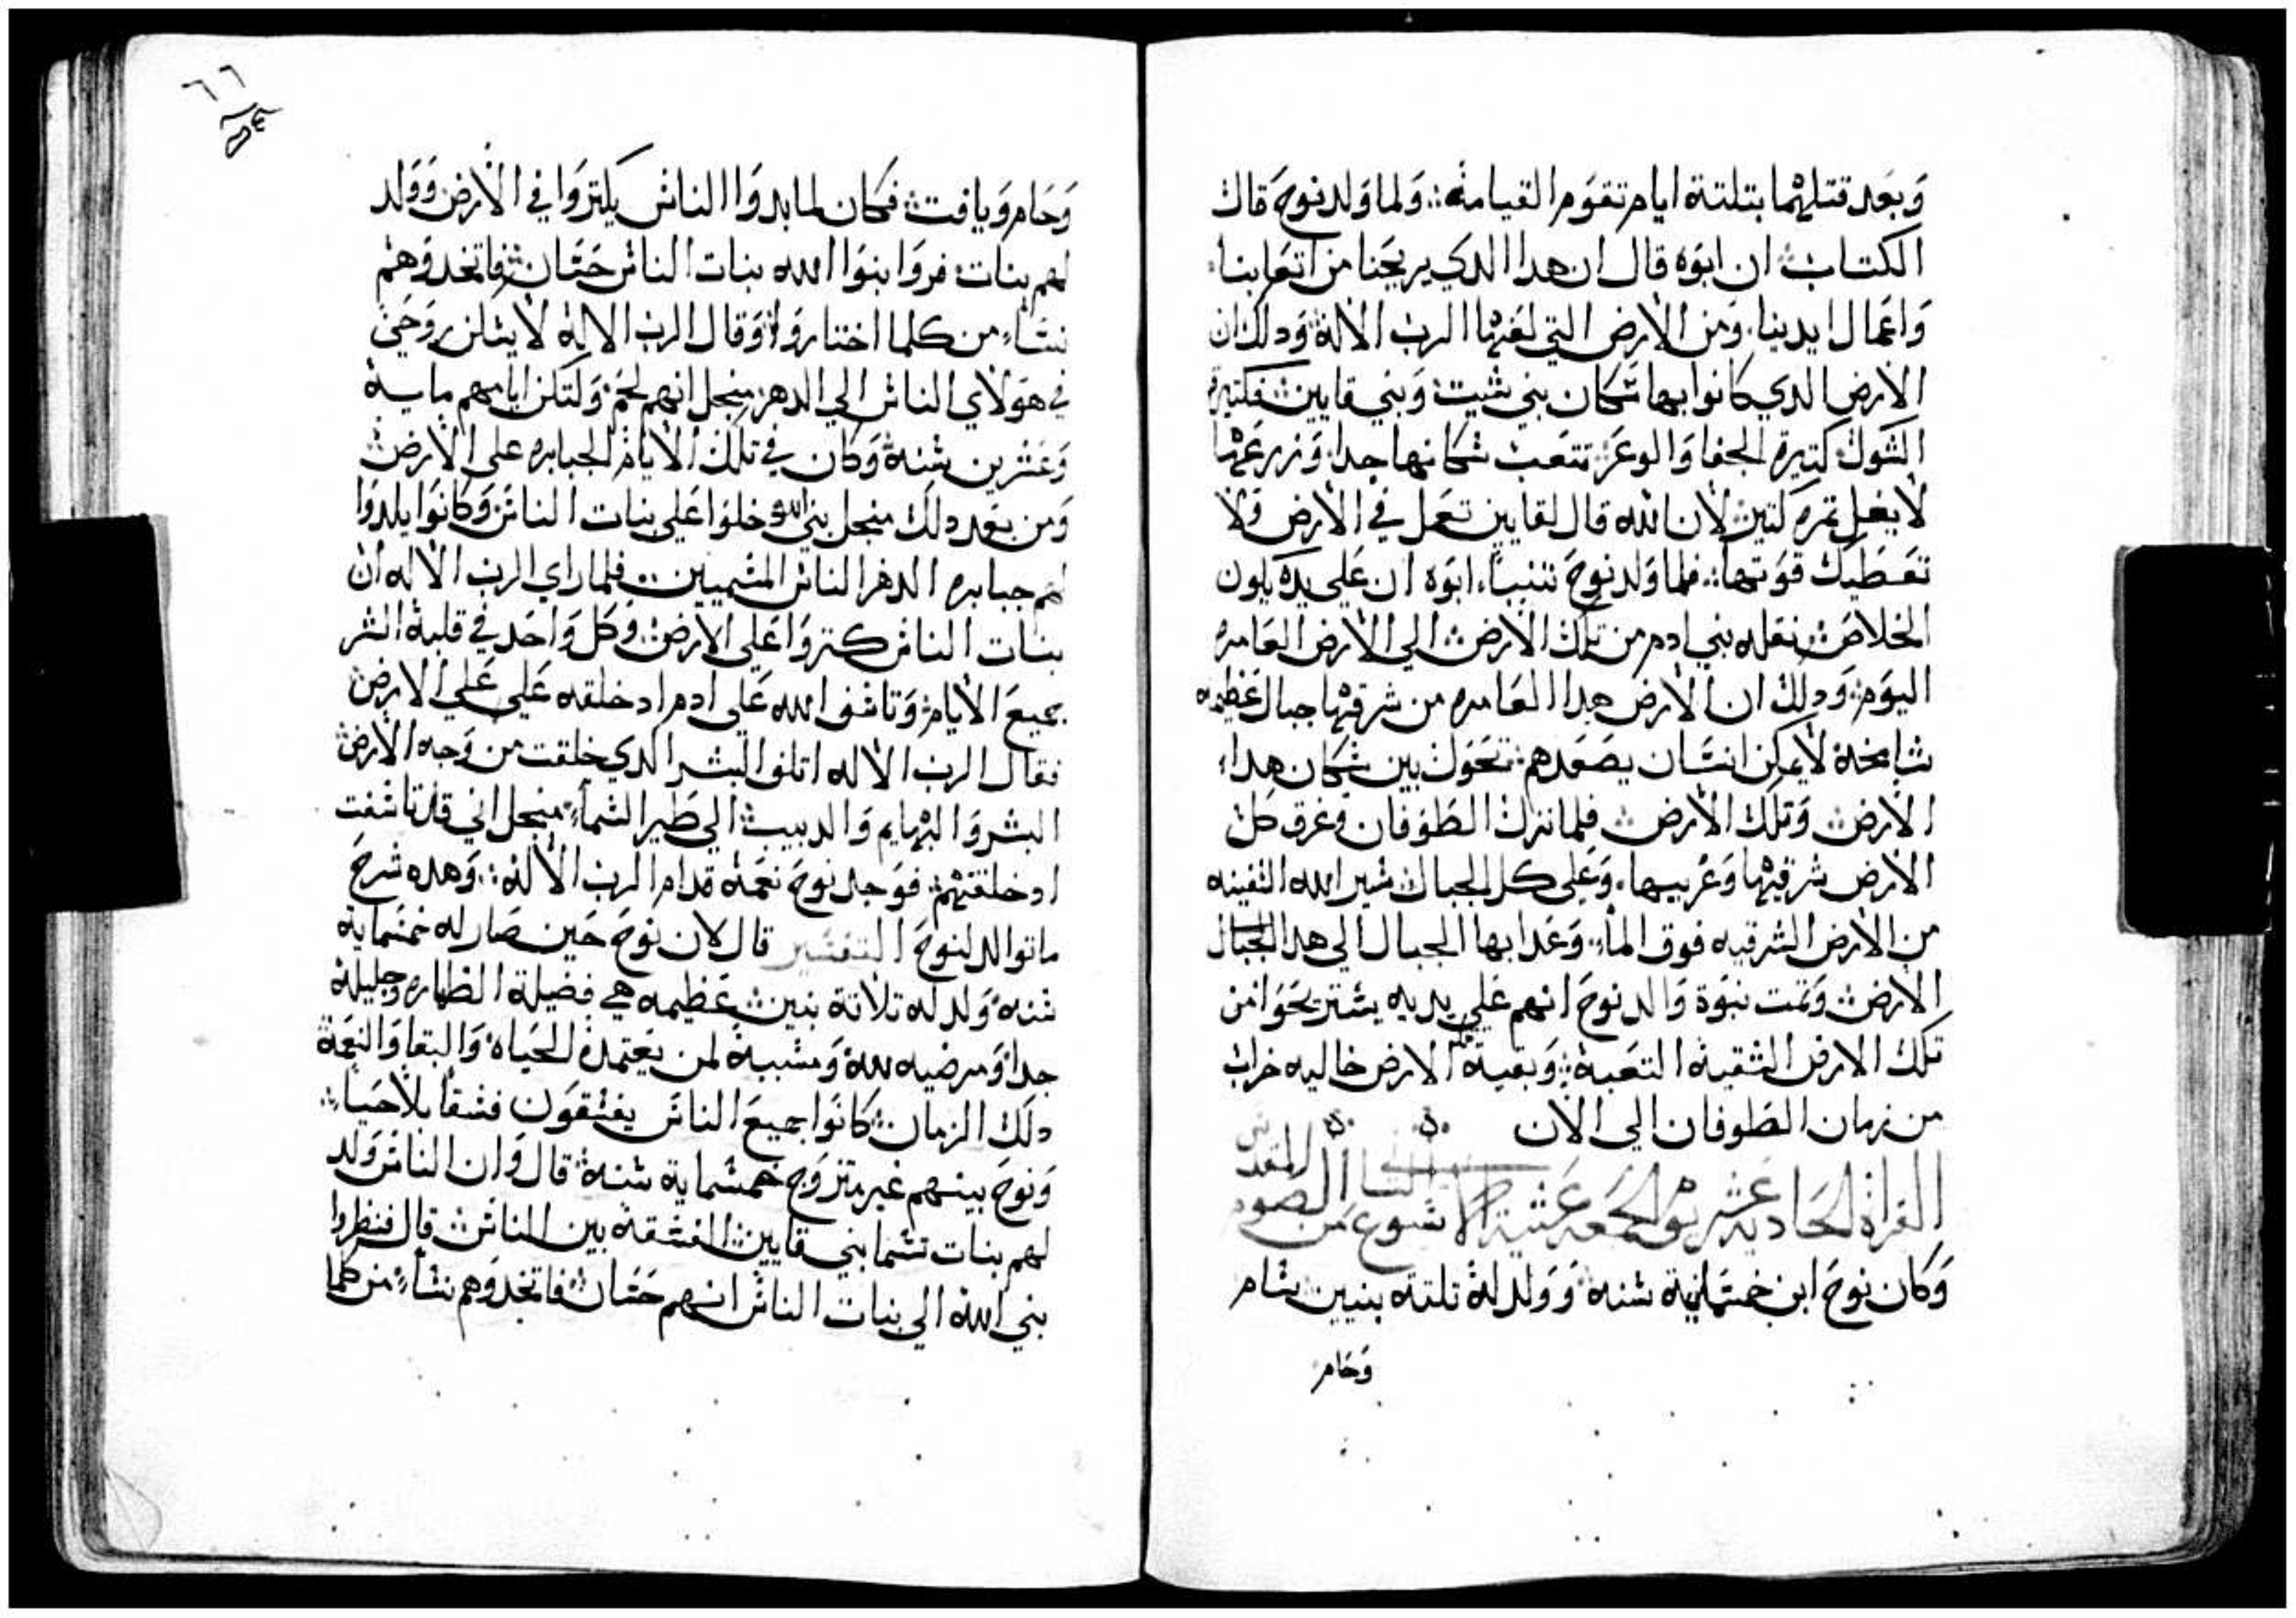 وبعد قتلهما بتلتة ايام تقوم القيامة ولما ولد نوح قال
الكتاب ان ابوه قال ان هدا الدي يريحنا من اتعابنا
واعمال ايدينا ومن الارض التي لعنها الرب الاله ودلك ان
الارض الدي كانوا بها سكان بني شيت وبني قايين فكتيرة
الشوك كتيرة الجفا والوعر تتعب سكانها جدا وزرعها
لا يغل تمره كتير لان الله قال لقايين تعمل في الارض ولا
تعطيك قوتها فلما ولد نوح تنبا ابوه ان على يده يكون
الخلاص نقله بني ادم من تلك الارض الي الارض العامره
اليوم ودلك ان الارض هدا العامره من شرقيها جبال عظيمه
شامخة لا يمكن انسان يصعدهم تحول بين سكان هدا
الارض وتلك الارض فلما نزل الطوفان وغرق كل
الارض شرقيها وغربيها وعلى كل الجبال سير الله السفينه
من الارض الشرقيه فوق الما وعدا بها الجبال الي هدا الجبال
الارض وتمت نبوة والد نوح انهم علي يديه يستريحوا من
تلك الارض الشقية التعبة وبقية الارض خاليه خراب
من زمان الطوفان الي الان
القراة الحادية عشر الجمعه عشية الاسبوع من الصوم المقدس
وكان نوح ابن خمسماية سنه وولد له تلته بنيين سام
وحام
٦٦
وحام ويافت فكان لما بدوا الناس يكتروا في الارض وولد
لهم بنات فروا بنوا الله بنات الناس حسان فاتخدوهم
نسا من كلما اختاروا وقال الرب الاله لا يسكن روحي
في هولاي الناس الي الدهر منجل انهم لحم ولتكن ايامهم ماية
وعشرين سنة وكان في تلك الايام الجبابره على الارض
ومن بعد دلك منجل بني الله دخلوا علي بنات الناس وكانوا يلدوا
لهم جبابره الدهر الناس المسميين فلما راي الرب الاله ان
بنات الناس كتروا على الارض وكل واحد في قلبة الشر
جميع الايام وتاسف الله على ادم اد خلقه علي علي الارض
فقال الرب الاله اتلف البشر الدي خلقت من وجه الارض
البشر والبهايم والدبيب الي طير السما منجل اني قد تاسفت
اد خلقتهم فوجد نوح نعمة قدام الرب الاله وهده شرح
ما توالد لنوح التفسير قال لان نوح حين صار له خمسماية
سنه ولد له تلاتة بنين عظيمه هي فضيلة الطهاره وجليلة
جدا ومرضيه لله ومسببة لمن يعتمدة الحياة والبقا والنعمة
دلك الزمان كانوا جميع الناس يفسقون فسقا بلا حيا
ونوح بينهم غير متزوج خمسماية سنة قال وان الناس ولد
لهم بنات تسما بني قايين الفسقة بين الناس قال فنظروا
بني الله الي بنات الناس انهم حسان فاتخدوهم نسا من كلما